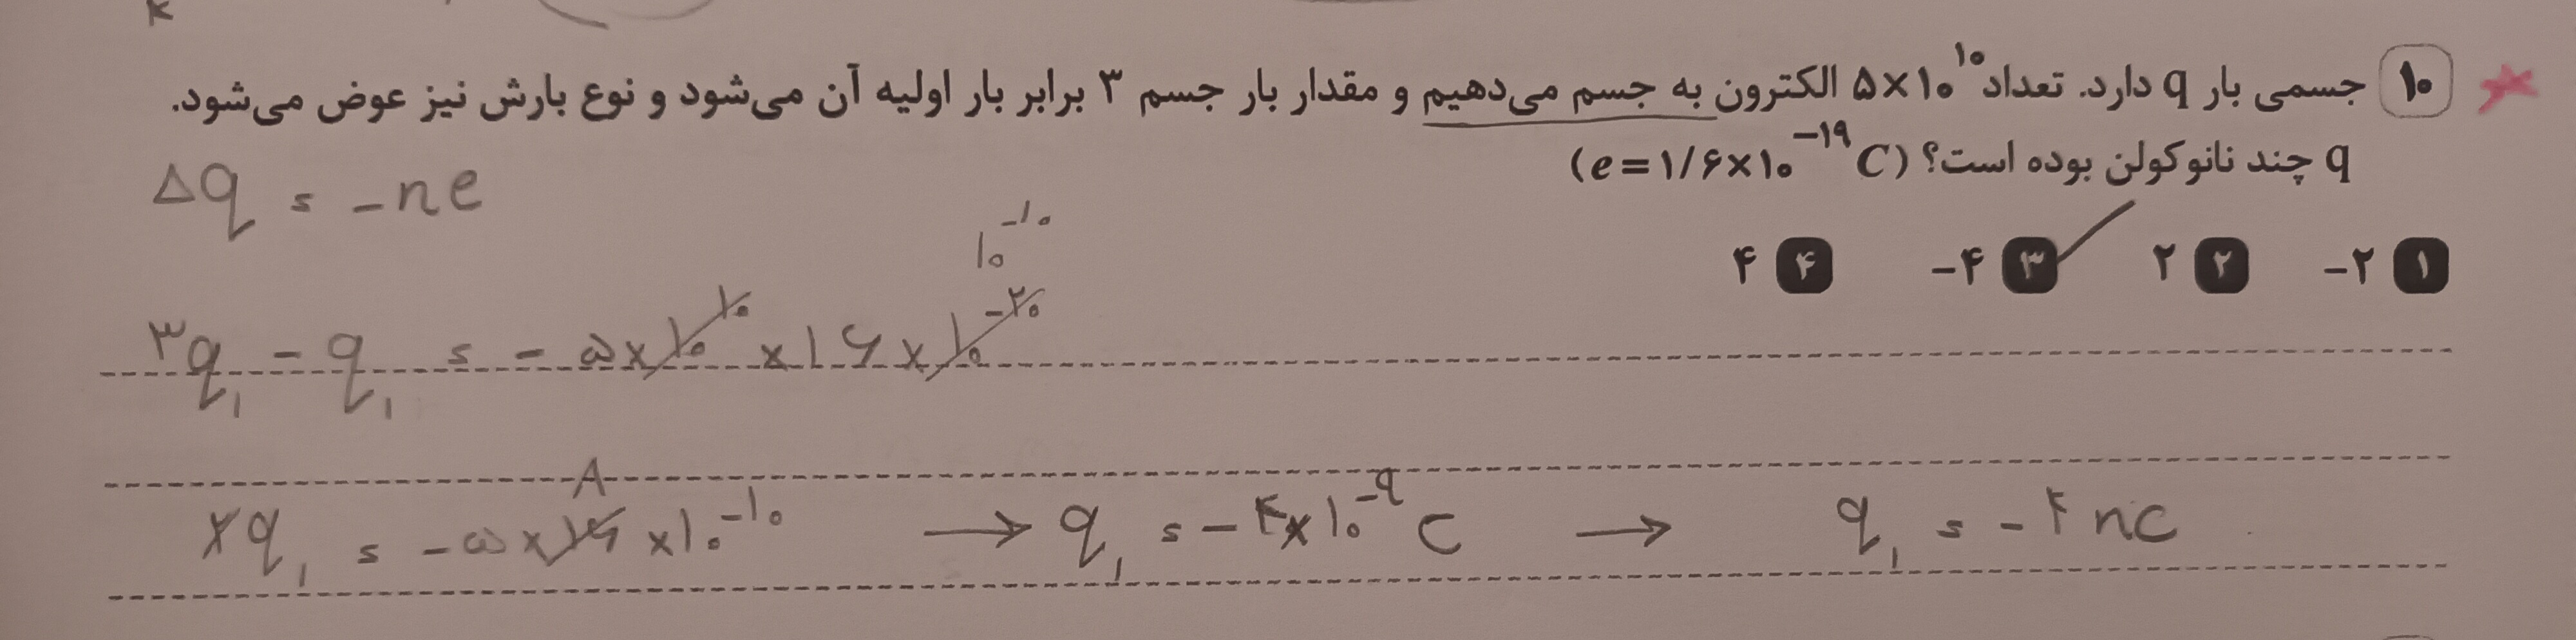 ۱۰ جسمی بار q دارد. تعداد ۵×۱۰^۱۰ الکترون به جسم می‌دهیم و مقدار بار جسم ۳ برابر بار اولیه آن می‌شود و نوع بارش نیز عوض می‌شود.
q چند نانوکولن بوده است؟ (e=۱/۶×۱۰^−۱۹ C)
Δq = −ne
۱ −۲ ۲ ۲ ۳ −۴ ۴ ۴
۱۰^−۱۰
۳q₁ − q₁ = − ۵×۱۰^۱۰ × ۱۶ × ۱۰^−۲۰
۸
۲q₁ = −۵×۱۶×۱۰^−۱۰ → q₁ = −۴×۱۰^−۹ C → q₁ = −۴ nC